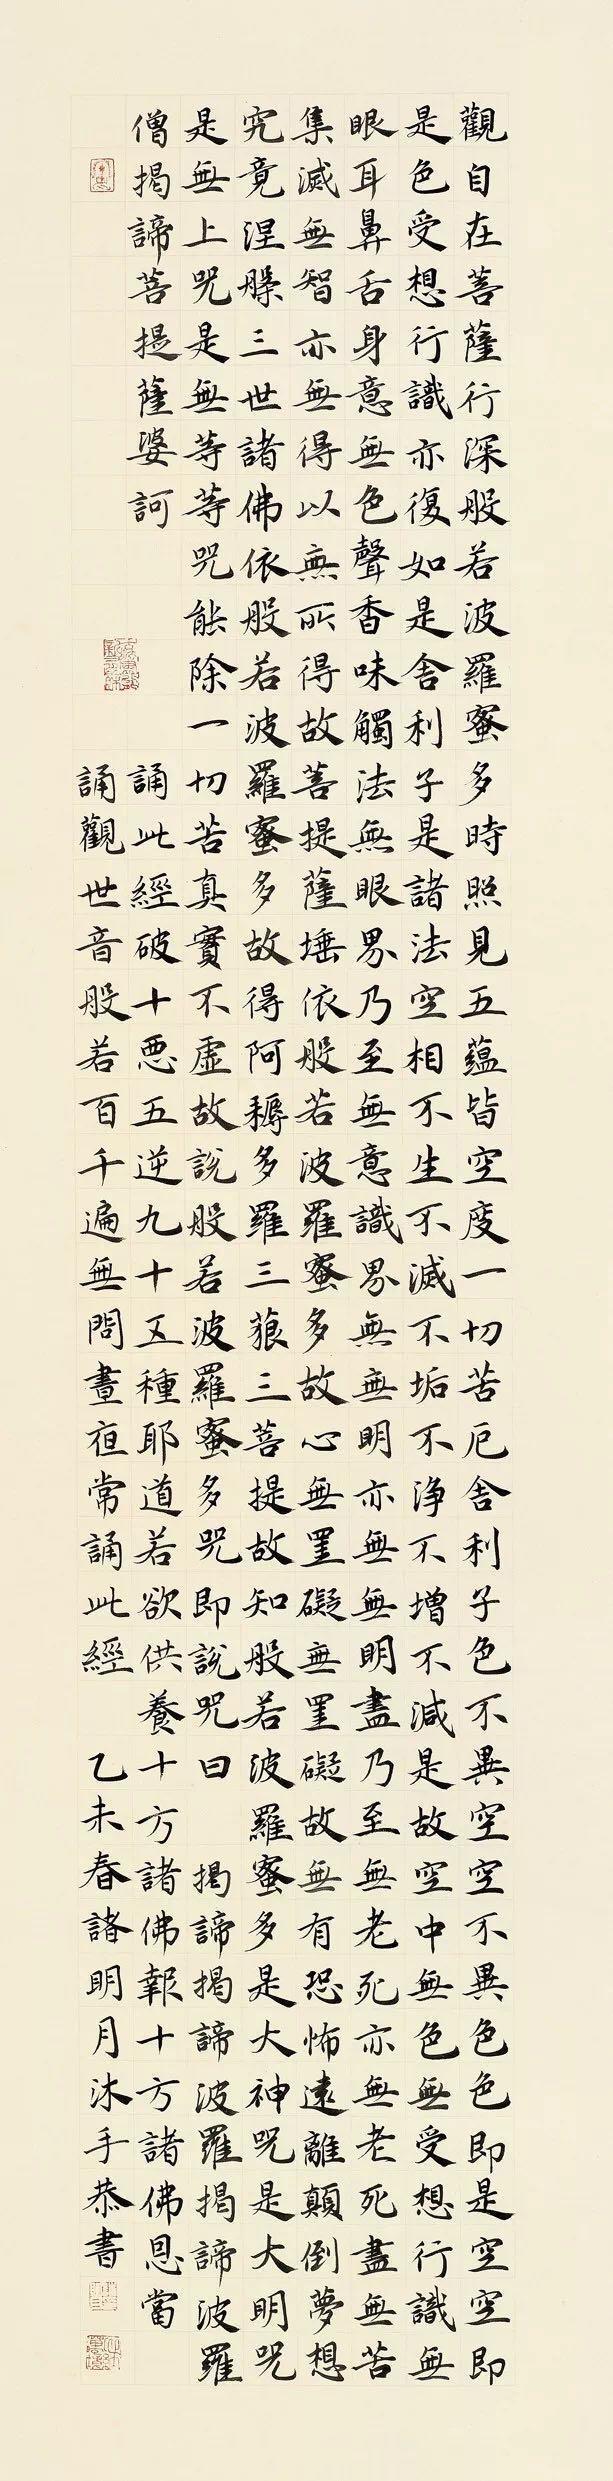 觀自在菩薩行深般若波羅蜜多時照見五蘊皆空度一切苦厄舍利子色不異空空不異色色即是空空即
是色受想行識亦復如是舍利子是諸法空相不生不滅不垢不淨不增不減是故空中無色無受想行識無
眼耳鼻舌身意無色聲香味觸法無眼界乃至無意識界無無明亦無無明盡乃至無老死亦無老死盡無苦
集滅無智亦無得以無所得故菩提薩埵依般若波羅蜜多故心無罣礙無罣礙故無有恐怖遠離顛倒夢想
究竟涅槃三世諸佛依般若波羅蜜多故得阿耨多羅三藐三菩提故知般若波羅蜜多是大神咒是大明咒
是無上咒是無等等咒能除一切苦真實不虛故說般若波羅蜜多咒即說咒曰 揭諦揭諦波羅揭諦波羅
僧揭諦菩提薩婆訶 誦此經破十惡五逆九十五種耶道若欲供養十方諸佛報十方諸佛恩當
誦觀世音般若百千遍無問晝夜常誦此經 乙未春諸明月沐手恭書